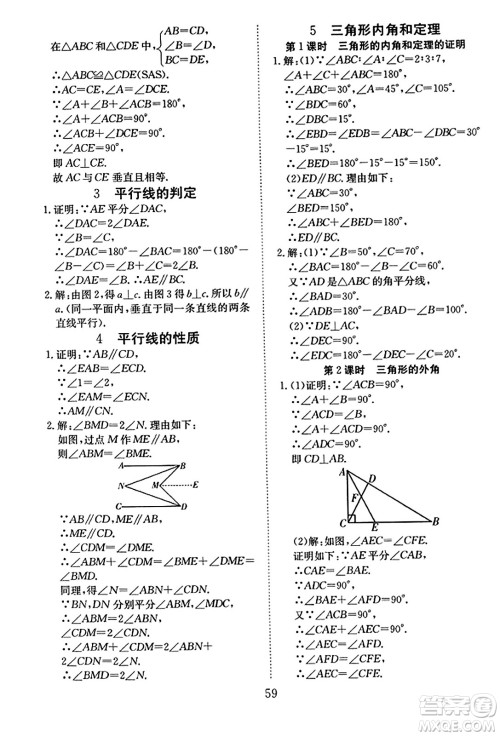 在△ABC和△DCE中, {AB=DC, ∠ABC=∠DCE, BC=CE.
∴△ABC≌△DCE(SAS).
∴AC=CE, ∠ACB=∠DEC.
∵∠A+∠ACB=180°,
∴∠ACB+∠DCE=180°,
∴∠ACE=90°,
即AC⊥CE.
故AC与CE垂直且相等.
3 平行线的判定
1.证明:∵AE平分∠DAC,
∴∠DAC=2∠DAE.
∴∠DAC=180°-∠BAC=180°-(180°-∠B-∠C)=∠B+∠C=2∠C,
∴∠C=∠DAE,∴AE∥BC.
2.解:由图2,得a⊥c.由图3,得b⊥c.所以b∥a.(同一平面内,垂直于同一条直线的两条直线平行).
4 平行线的性质
1.证明:∵AB∥CD,
∴∠EAB=∠ECD.
∵∠1=∠2,
∴∠EAM=∠ECN.
∴AM∥CN.
2.解:∠BMD=2∠N.理由如下:
如图,过点M作ME∥AB,
则∠ABM=∠BME.
A
B
N
M
E
C
D
∵AB∥CD,∴ME∥CD,
∴∠CDM=∠DME,
∴∠ABM+∠CDM=∠BMD.
同理可得∠N=∠ABN+∠CDN.
∵BN,DN分别平分∠ABM,∠CDM,
∴∠ABM=2∠ABN,
∠CDM=2∠CDN,
∴∠BMD=2∠N.
5 三角形内角和定理
第1课时 三角形的内角和定理的证明
1.解:(1)∵∠A∶∠ABC∶∠C=2∶3∶7,
∠A+∠ABC+∠C=180°,
∴∠A=30°,∠ABC=45°,∠C=105°.
∵∠BDE=15°,
∴∠EBD=∠ABC-∠DBC=45°-30°=15°.
∴∠BED=180°-15°-15°=150°.
(2)ED∥BC.理由如下:
∵∠ABC=∠ABD+∠DBC,
∠ABC=∠ABD+∠BDE,
∴∠DBC=∠BDE,
∴ED∥BC.
2.解:(1)∵∠B=50°,∠C=70°,
∴∠BAC=180°-∠B-∠C=60°.
又∵AD是△ABC的角平分线,
∴∠BAD=∠BAC=30°.
∵DE⊥AB,∴∠DEA=90°,
∴∠EDA=180°-∠BAD-∠DEA=60°.
第2课时 三角形的外角
1.(1)证明:∵∠ACB=90°,
∴∠A+∠B=90°.
∵∠ACD=∠B,
∴∠A+∠ACD=90°,
∴∠ADC=90°.
即CD⊥AB.
A
D
F
C
E
B
(2)解:如图,∠AEC=∠CFE.
∵∠ADC=90°,
∴∠BAE+∠AFD=90°.
∵∠ACB=90°,
∴∠CAE+∠AEC=90°.
又∵∠CAE=∠BAE,
∴∠AEC=∠AFD.
∵∠AFD=∠CFE,
∴∠AEC=∠CFE.
59